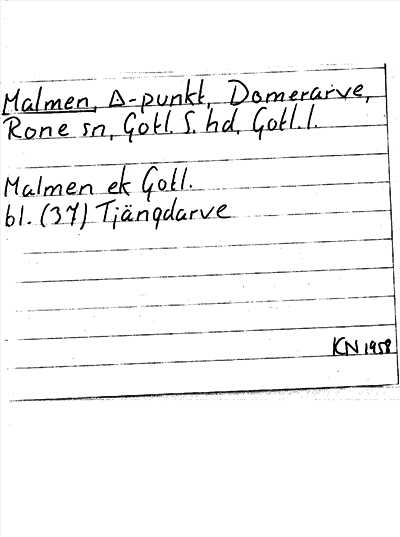 Malmen, Δ-punkt, Domerarve,
Rone sn, Gotl. S. hd, Gotl. l.
Malmen ek Gotl.
bl. (37) Tjängdarve
KN 1958